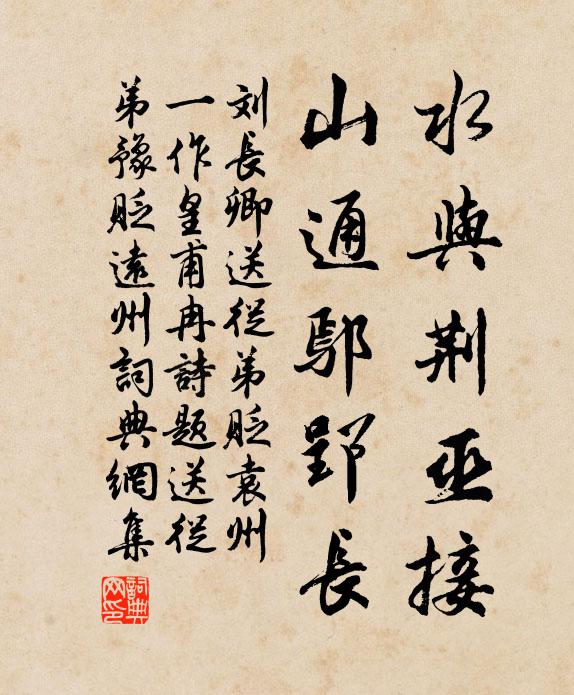 水與荆巫接
山通鄢郢長
刘長卿送從弟貶袁州
一作皇甫冉詩題送從
弟豫貶遠州詞典網集
詞典
网印